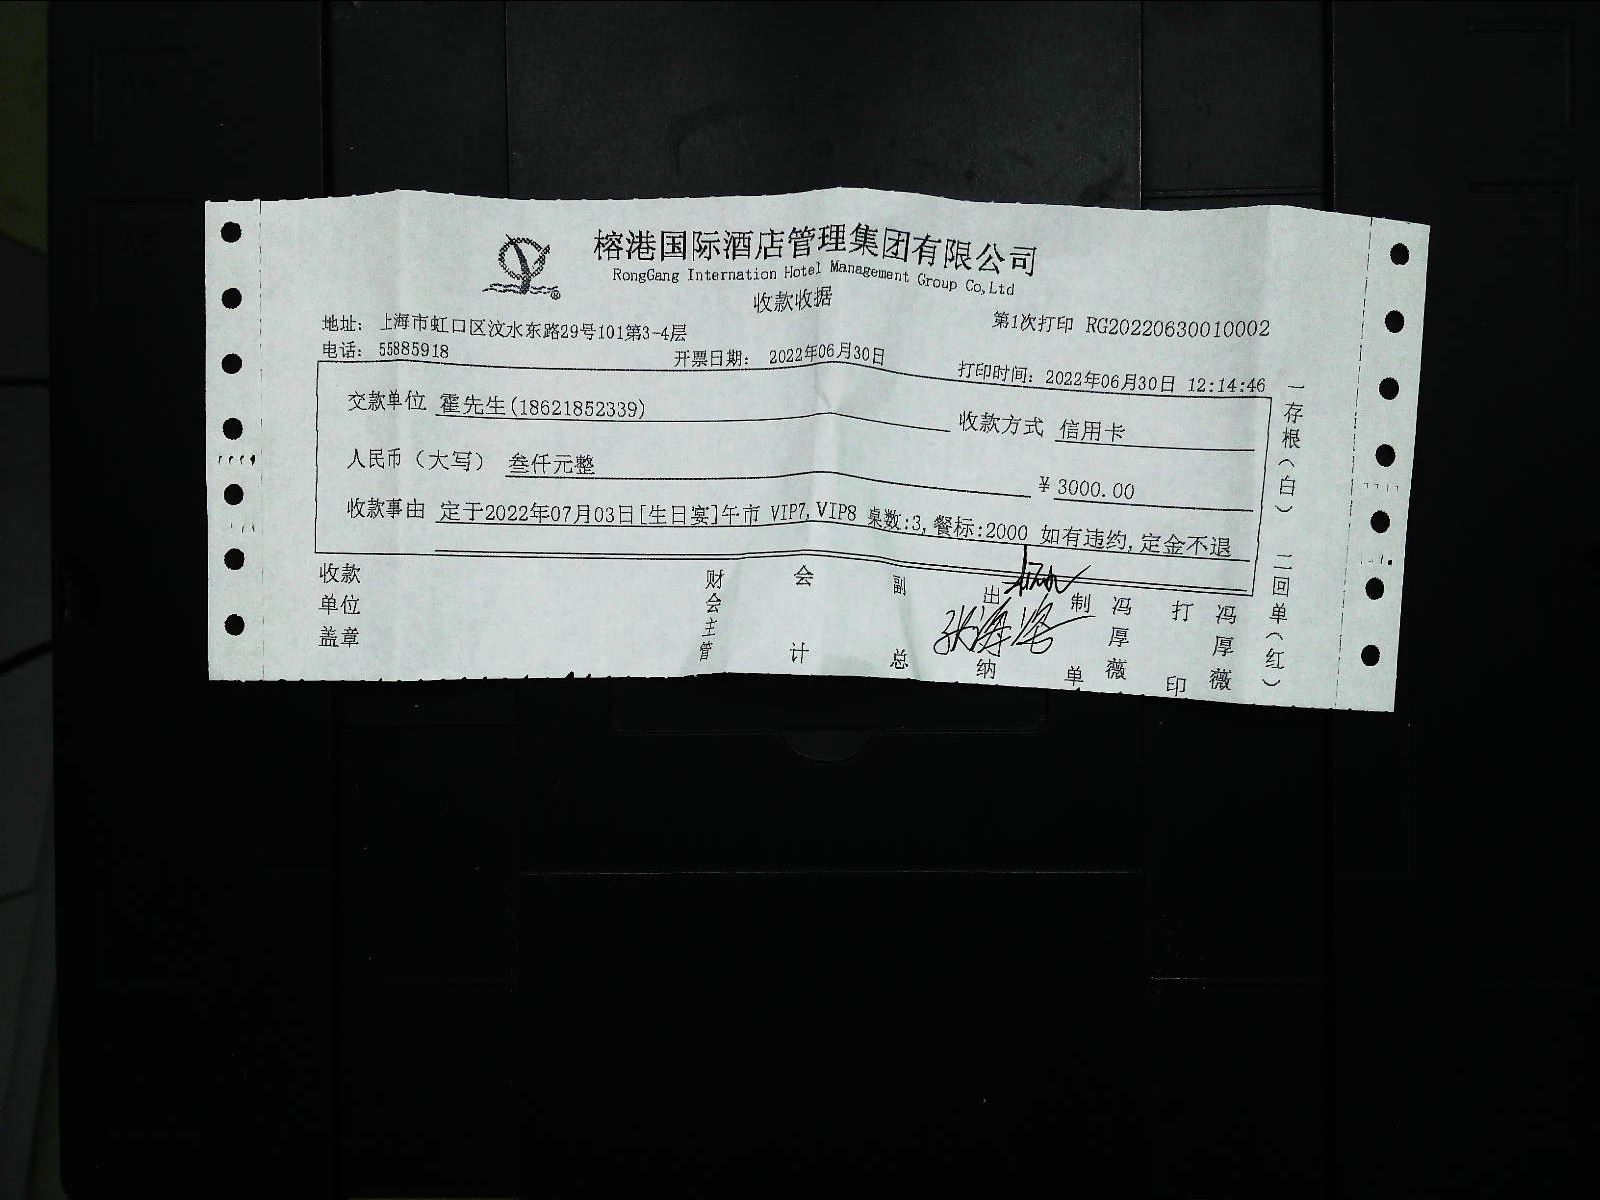 榕港国际酒店管理集团有限公司
RongGang Internation Hotel Management Group Co,Ltd
收款收据
地址: 上海市虹口区汶水东路29号101第3-4层
第1次打印 RG20220630010002
电话: 55885918
开票日期: 2022年06月30日
打印时间: 2022年06月30日 12:14:46
交款单位 霍先生(18621852339)
收款方式 信用卡
人民币（大写） 叁仟元整
¥ 3000.00
收款事由 定于2022年07月03日[生日宴]午市 VIP7,VIP8 桌数:3,餐标:2000 如有违约,定金不退
收款单位盖章
财会主管
会计
副总
出纳
制单
冯厚薇
打印
冯厚薇
一存根(白) 二回单(红)